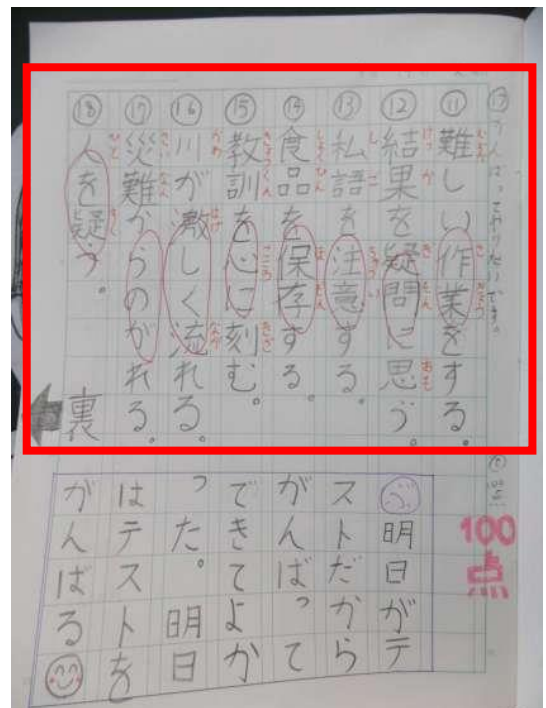 ⑪難しい作業をする。
⑫結果を疑問に思う。
⑬私語を注意する。
⑭食品を保存する。
⑮教訓を心に刻む。
⑯川が激しく流れる。
⑰災難からのがれる。
⑱人を疑う。
裏
100点
明日がテ
ストだから
がんばって
できてよか
った。明日
はテストを
がんばる